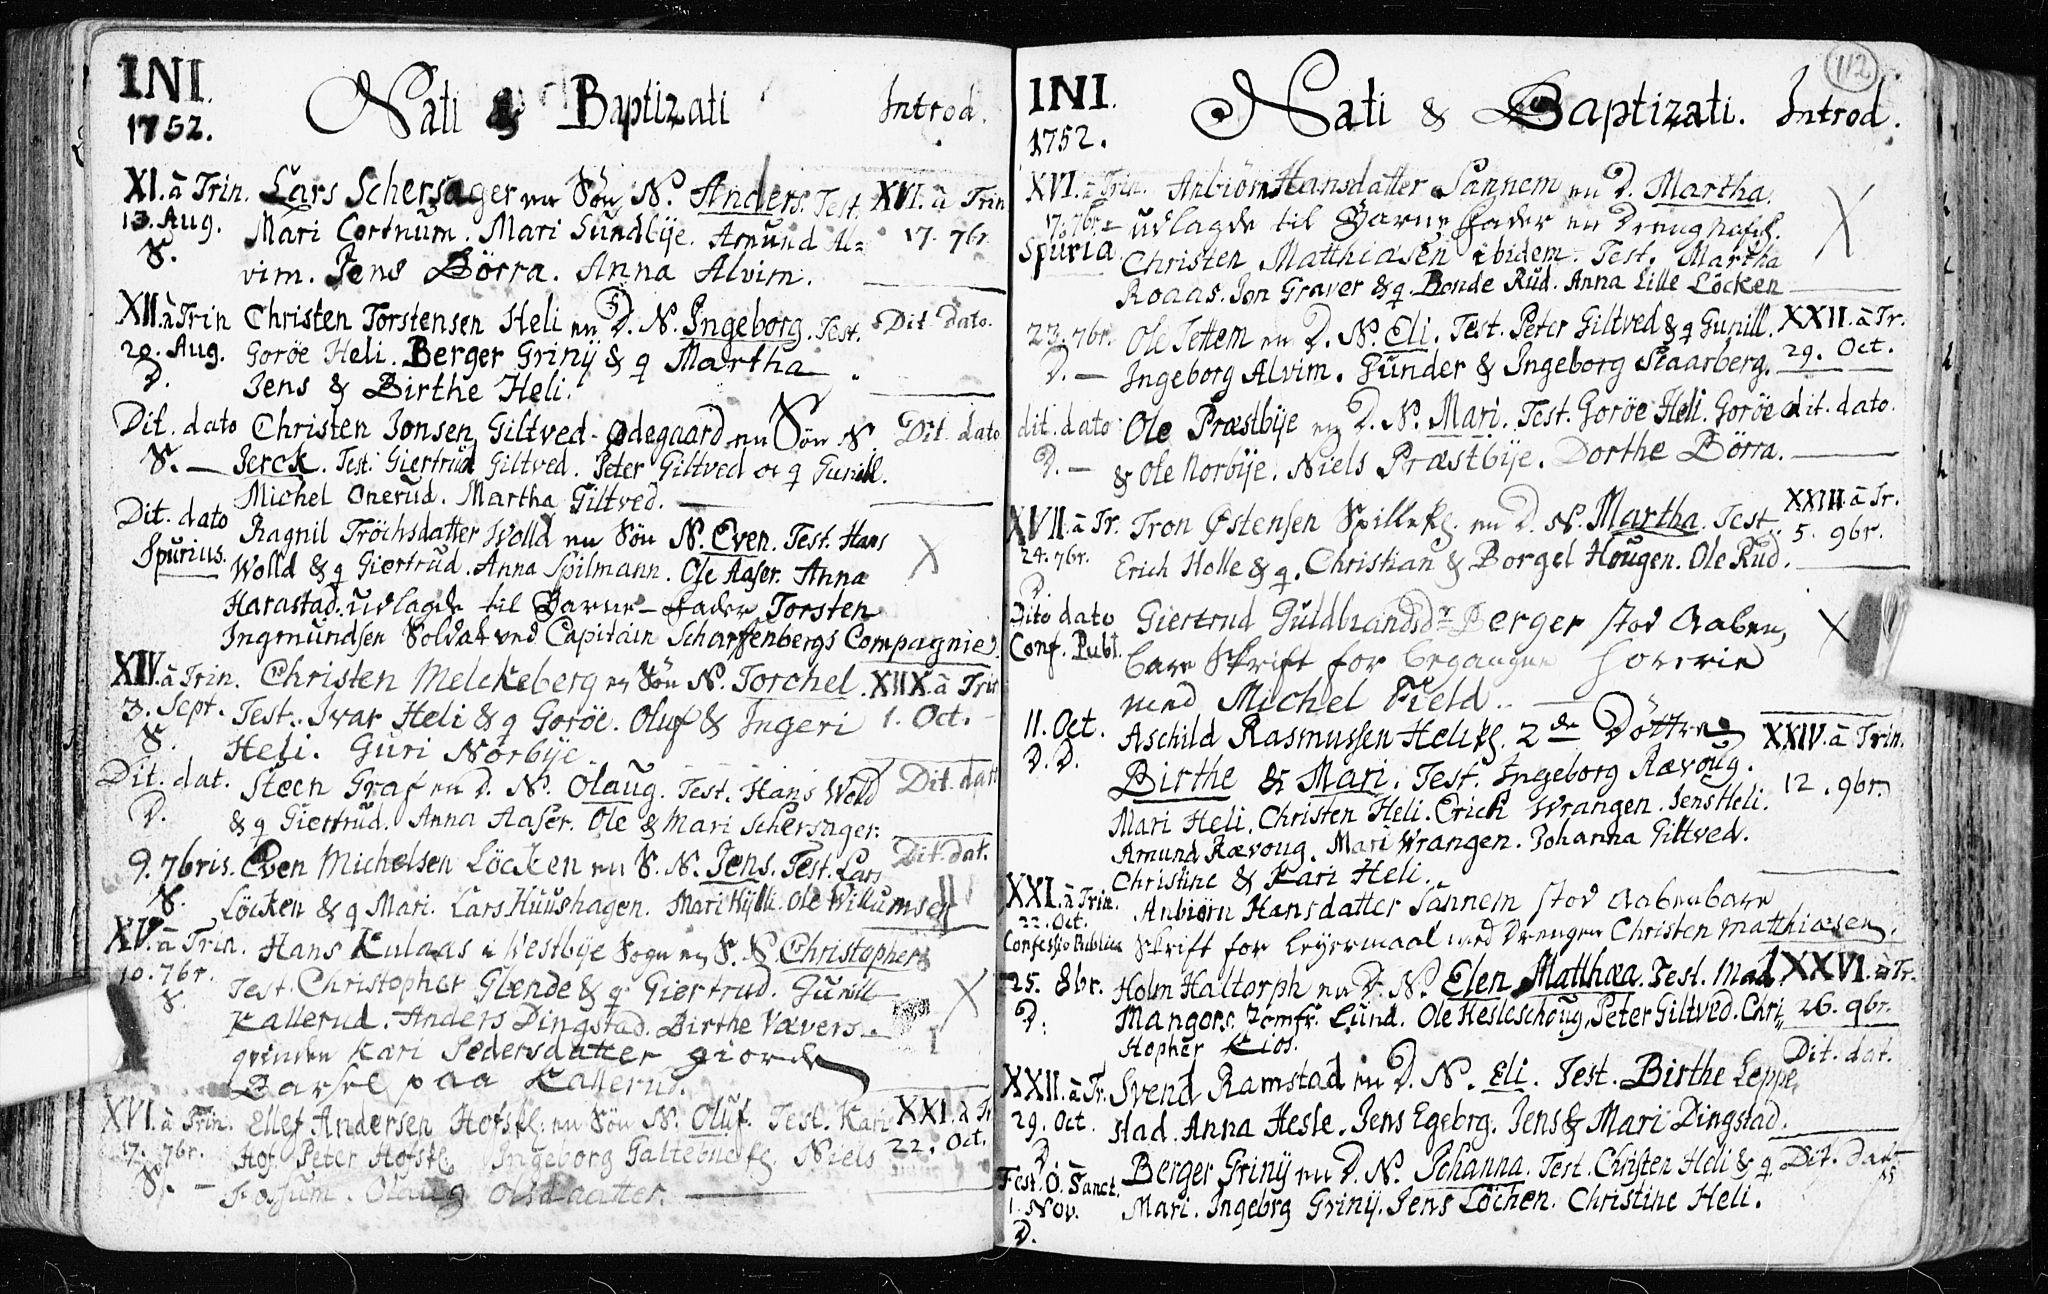 INI.
1752.
Nati & Baptizati
Introd.
XI. à Trin. Lars Schersager en Sön N. Anders. Test. XVI. à Trin
13. Aug. Mari Cortnum. Mari Sundbÿe. Amund Al= 17. 7br.
S. vim. Jens Börra. Anna Alvim.
XII. à Trin Christen Torstensen Heli en D. N. Ingeborg. Test. Dit dato.
20. Aug. Goröe Heli. Berger Grinÿ & q Martha
D. Jens & Birthe Heli.
Dit. dato Christen Jonsen Giltved-Ødegaard en Sön N Dit. dato
S. — Jerck. Test. Giertrud Giltved. Peter Giltved & q Gunill.
Michel Onerud. Martha Giltved.
Dit. dato Ragnil Tröchsdatter Wolld en Sön N. Even. Test. Hans
Spurius. Wolld & q Giertrud. Anna Spilmann. Ole Aaser. Anna X
Harastad. udlagde til Barne-Fader Torsten
Ingmundsen Soldat ved Capitain Scharffenbergs Compagnie.
XIV. à Trin. Christen Melckeberg en Sön N. Torchel. XIIX. à Trin
3. Sept. Test. Ivar Heli & q Goröe. Oluf & Ingeri 1. Oct.
S. Heli. Guri Norbÿe.
Dit. dat. Steen Graf en D. N. Olaug. Test. Hans Wolld Dit. dat
D. & q Giertrud. Anna Aaser. Ole & Mari Schersager.
9. 7bris. Even Michelsen Löcken en S. N. Jens. Test. Lars Dit. dat.
S. Löcken & q Mari. Lars Huushagen. Mari Hylli. Ole Willumsen
XV. à Trin. Hans Kulaas i Westbÿe Sogn en S. N Christopher
10. 7br. Test. Christopher Glende & q Giertrud. Gunill X
S. Kallerud. Anders Dingstad. Birthe Vævers
qvinden Kari Pedersdatter giorde
Barsel paa Kallerud.
XVI. à Trin. Ellef Andersen Hofs en Sön N. Oluf. Test. Kari XXI. à Tr
17. 7br. Hof. Peter Hofs Ingeborg Galtebÿe Niels 22. Oct.
S. — Fossum. Olaug Olsdaatter.
112
INI.
1752.
Nati & Baptizati. Introd.
XVI. à Trin. Anbiörn Hansdatter Sannem en D. Martha.
17. 7br. udlagde til Barne Fader en Dreng
Spuria. Christen Matthiasen ibidem. Test. Martha X
Roaas. Jon Graver & q. Bonde Rud. Anna Lille Löcken
23. 7br. Ole Tettem en D. N. Eli. Test. Peter Giltved & q Gunill. XXII. à Tr.
D. — Ingeborg Alvim. Gunder & Ingeborg Skaarberg. 29. Oct.
dit. dato Ole Præstbÿe en D. N. Mari. Test. Goröe Heli. Goröe dit. dato.
D. — & Ole Norbÿe. Niels Præstbÿe. Dorthe Börra.
XVII. à Tr. Tron Østensen Spille en D. N. Martha. Test. XXIII. à Tr.
24. 7br. Erich Holle & q. Christian & Borgel Hougen. Ole Rud. 5. 9br.
D
Dito dato Giertrud Guldbrandsdr Berger stod Aaben,
Conf. Publ. bare Skrift for begangen Horerie X
med Michel Field.
11. Oct. Aschild Rasmussen Heli 2de Döttre XXIV. à Trin.
D. D. Birthe & Mari. Test. Ingeborg Rævoug. 12. 9br.
Mari Heli. Christen Heli. Erick Wrangen. Jens Heli.
Amund Rævoug. Mari Wrangen. Johanna Giltved.
Christine & Kari Heli.
XXI. à Trin. Anbiörn Hansdatter Sannem stod aabenbare
22. Oct.
Confessio Publica Skrift for leÿermaal med Drengen Christen Matthiæsen.
25. 8br. Holm Haltorph en D. N. Elen Matthæa. Test. Mad. XXVI. à Tr.
D. Mangors. Jomfr. Lund. Ole Hesleschoug. Peter Giltved. Chri= 26. 9br.
stopher Kios. Dit. dat.
XXII. à Tr. Svend Ramstad en D. N. Eli. Test. Birthe Leppe,
29. Oct. stad. Anna Hesle. Jens Egebrg. Jens & Mari Dingstad.
D
Fest. O. Sanct. Berger Grinÿ en D. N. Johanna. Test. Christen Heli & q Dit. dat
1. Nov. Mari. Ingebrg Grinÿ. Jens Löchen. Christine Heli.
D.